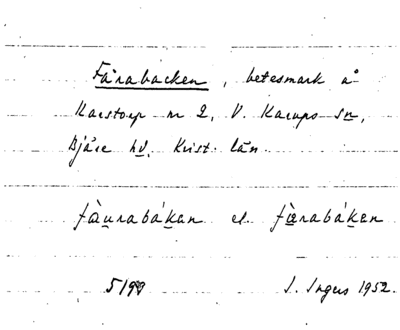 Fårabacken, betesmark å
Karstorp nr 2, V. Karups sn,
Bjäre hd, Krist. län
fàu̲rabák̲an el. fæ̀rabák̲en
5198
I. Ingers 1952.